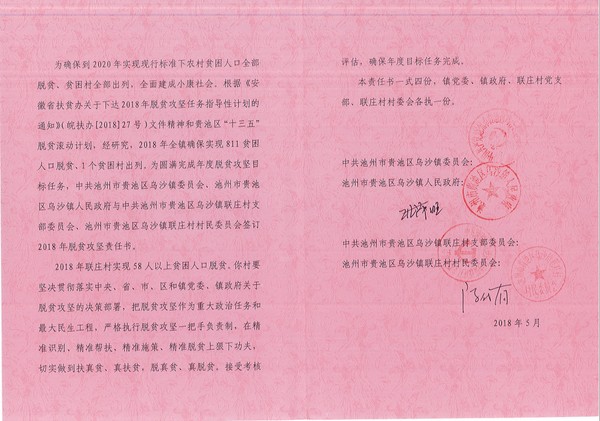 为确保到2020年实现现行标准下农村贫困人口全部
脱贫、贫困村全部出列，全面建成小康社会。根据《安
徽省扶贫办关于下达2018年脱贫攻坚任务指导性计划的
通知》(皖扶办[2018]27号)文件精神和贵池区“十三五”
脱贫滚动计划，经研究，2018年全镇确保实现811贫困
人口脱贫、1个贫困村出列。为圆满完成年度脱贫攻坚目
标任务，中共池州市贵池区乌沙镇委员会、池州市贵池
区乌沙镇人民政府与中共池州市贵池区乌沙镇联庄村支
部委员会、池州市贵池区乌沙镇联庄村村民委员会签订
2018年脱贫攻坚责任书。
2018年联庄村实现58人以上贫困人口脱贫。你村要
坚决贯彻落实中央、省、市、区和镇党委、镇政府关于
脱贫攻坚的决策部署，把脱贫攻坚作为重大政治任务和
最大民生工程，严格执行脱贫攻坚一把手负责制，在精
准识别、精准帮扶、精准施策、精准脱贫上狠下功夫，
切实做到扶真贫、真扶贫，脱真贫、真脱贫，接受考核
评估，确保年度目标任务完成。
本责任书一式四份，镇党委、镇政府、联庄村党支
部、联庄村村委会各执一份。
中共池州市贵池区乌沙镇委员会：
池州市贵池区乌沙镇人民政府：
中共池州市贵池区乌沙镇联庄村支部委员会：
池州市贵池区乌沙镇联庄村村民委员会：
2018年5月